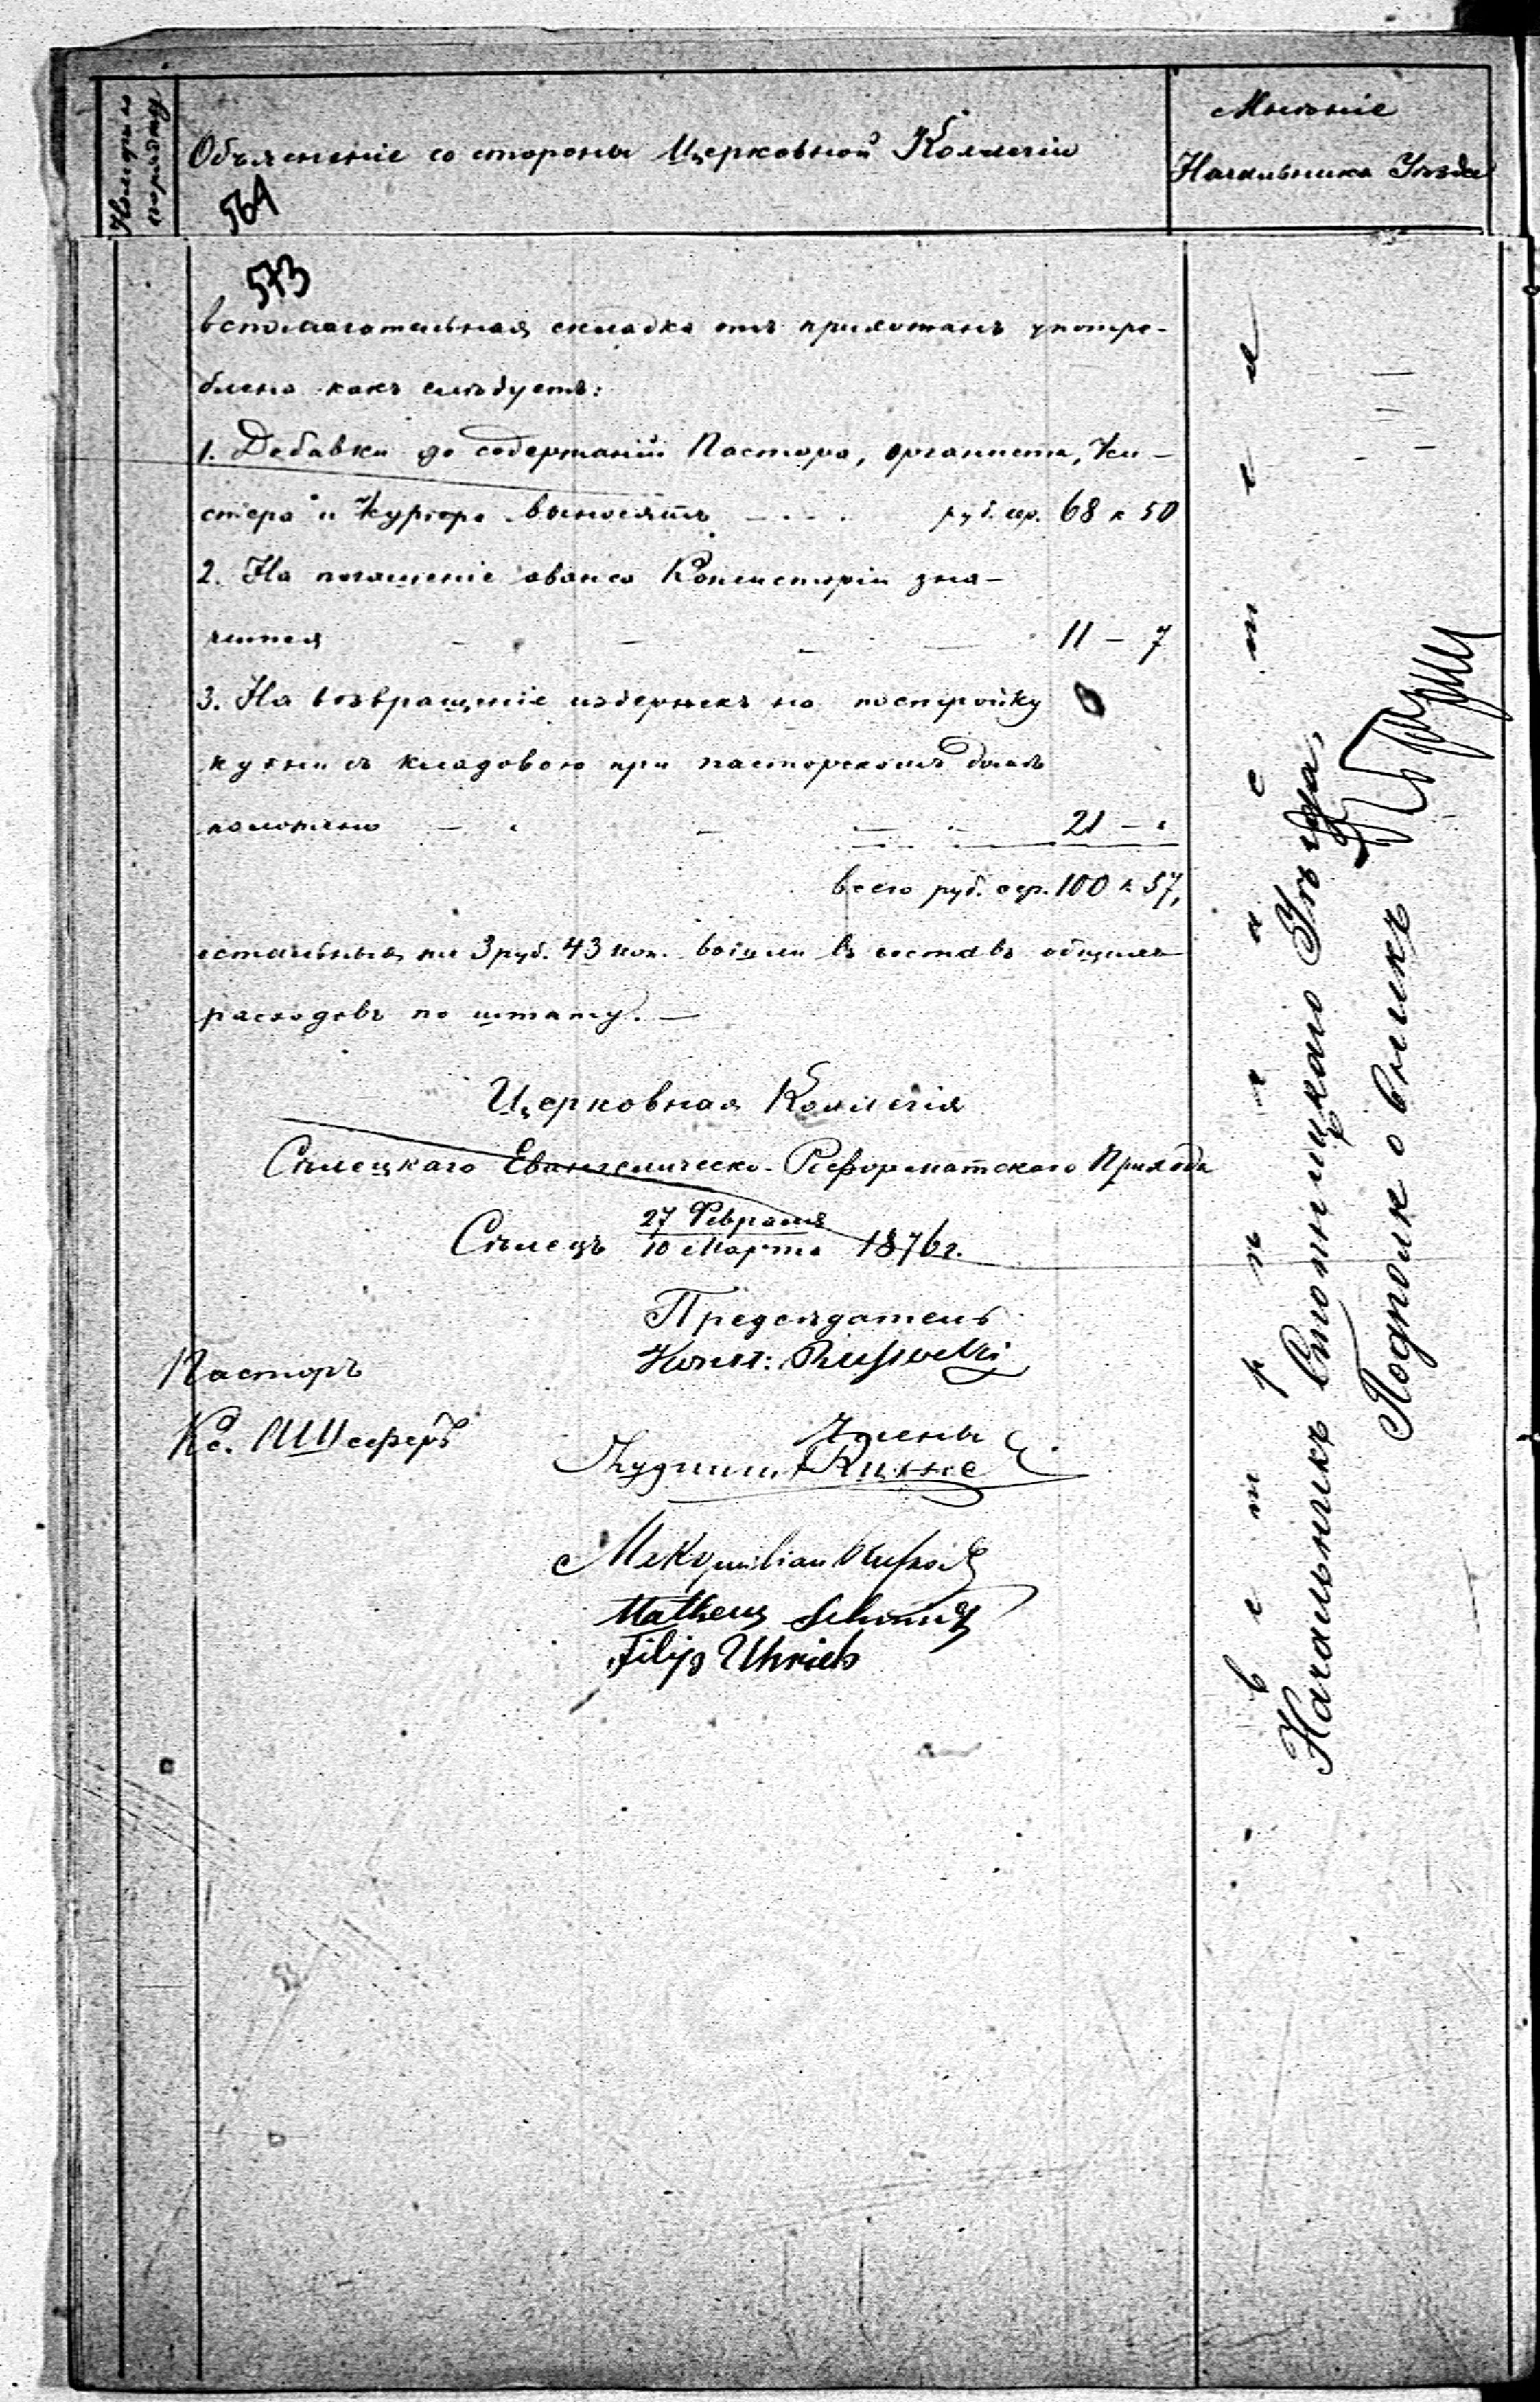 Номеръ по порядку
Объясненіе со стороны Церковной Коллегіи
Мнѣніе
Начальника Уѣзда
564
573
вспомагательная складка отъ прихожанъ употре-
блена какъ слѣдуетъ:
1. Добавки до содержаній Пастора, органиста, Ки-
стера и Курора выносятъ руб. сер. 68 к 50
2. На погашеніе аванса Консисторіи зна-
чится 11 – 7
3. На возвращеніе издержекъ на постройку
кухни съ кладовою при пасторскомъ домѣ
положено 21 –
всего руб. сер. 100 к 57,
остальныя же 3 руб. 43 коп. вошли въ составъ общихъ
расходовъ по штату. —
Церковная Коллегія
Сѣлецкаго Евангелическо-Реформатскаго Прихода
Сѣлецъ 27 Февраля / 10 Марта 1876 г.
Предсѣдатель
Пасторъ
Ке. Шеферъ
Члены
Matheus Schmidt
Filip Uhrich
Начальникъ Стопницкаго Уѣзда,
Подполковникъ